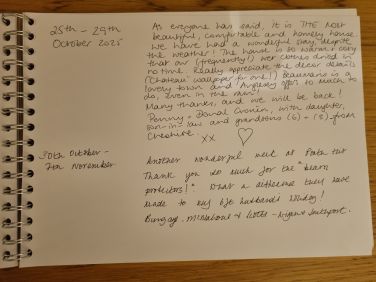 25th - 29th
October 2025
As everyone has said, it is THE most
beautiful, comfortable and homely house.
We have had a wonderful stay, despite
the weather! The house is so warm + cosy
that our (frequently!) wet clothes dried in
no time. Really appreciate the decor details
(Chateau wallpaper for one!) Beaumaris is a
lovely town and Anglesey offers so much to
do, even in the rain!
Many thanks, and we will be back!
Penny + Cronin, with daughter,
son-in-law and grandsons (6) + (3) from
Cheshire. xx
30th October -
7th November
Another wonderful week at
Thank you so much for the "beam
protectors!" What a difference they have
made to my 6ft husband's holiday!
+ - Southport.